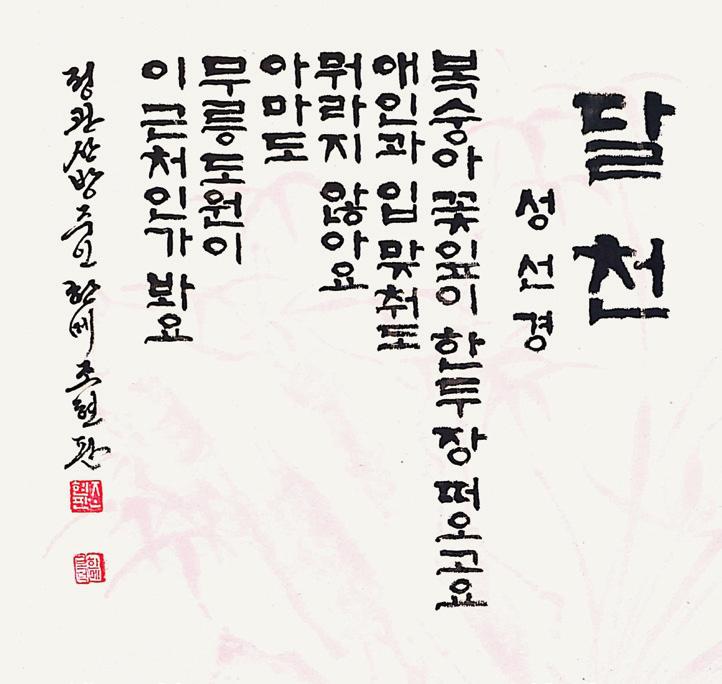 달천
성선경
복숭아 꽃잎이 한두 장 떠오고요
애인과 입 맞춰도
뭐라지 않아요
아마도
무릉도원이
이 근처인가 봐요
정관산방주인 한메 조현판